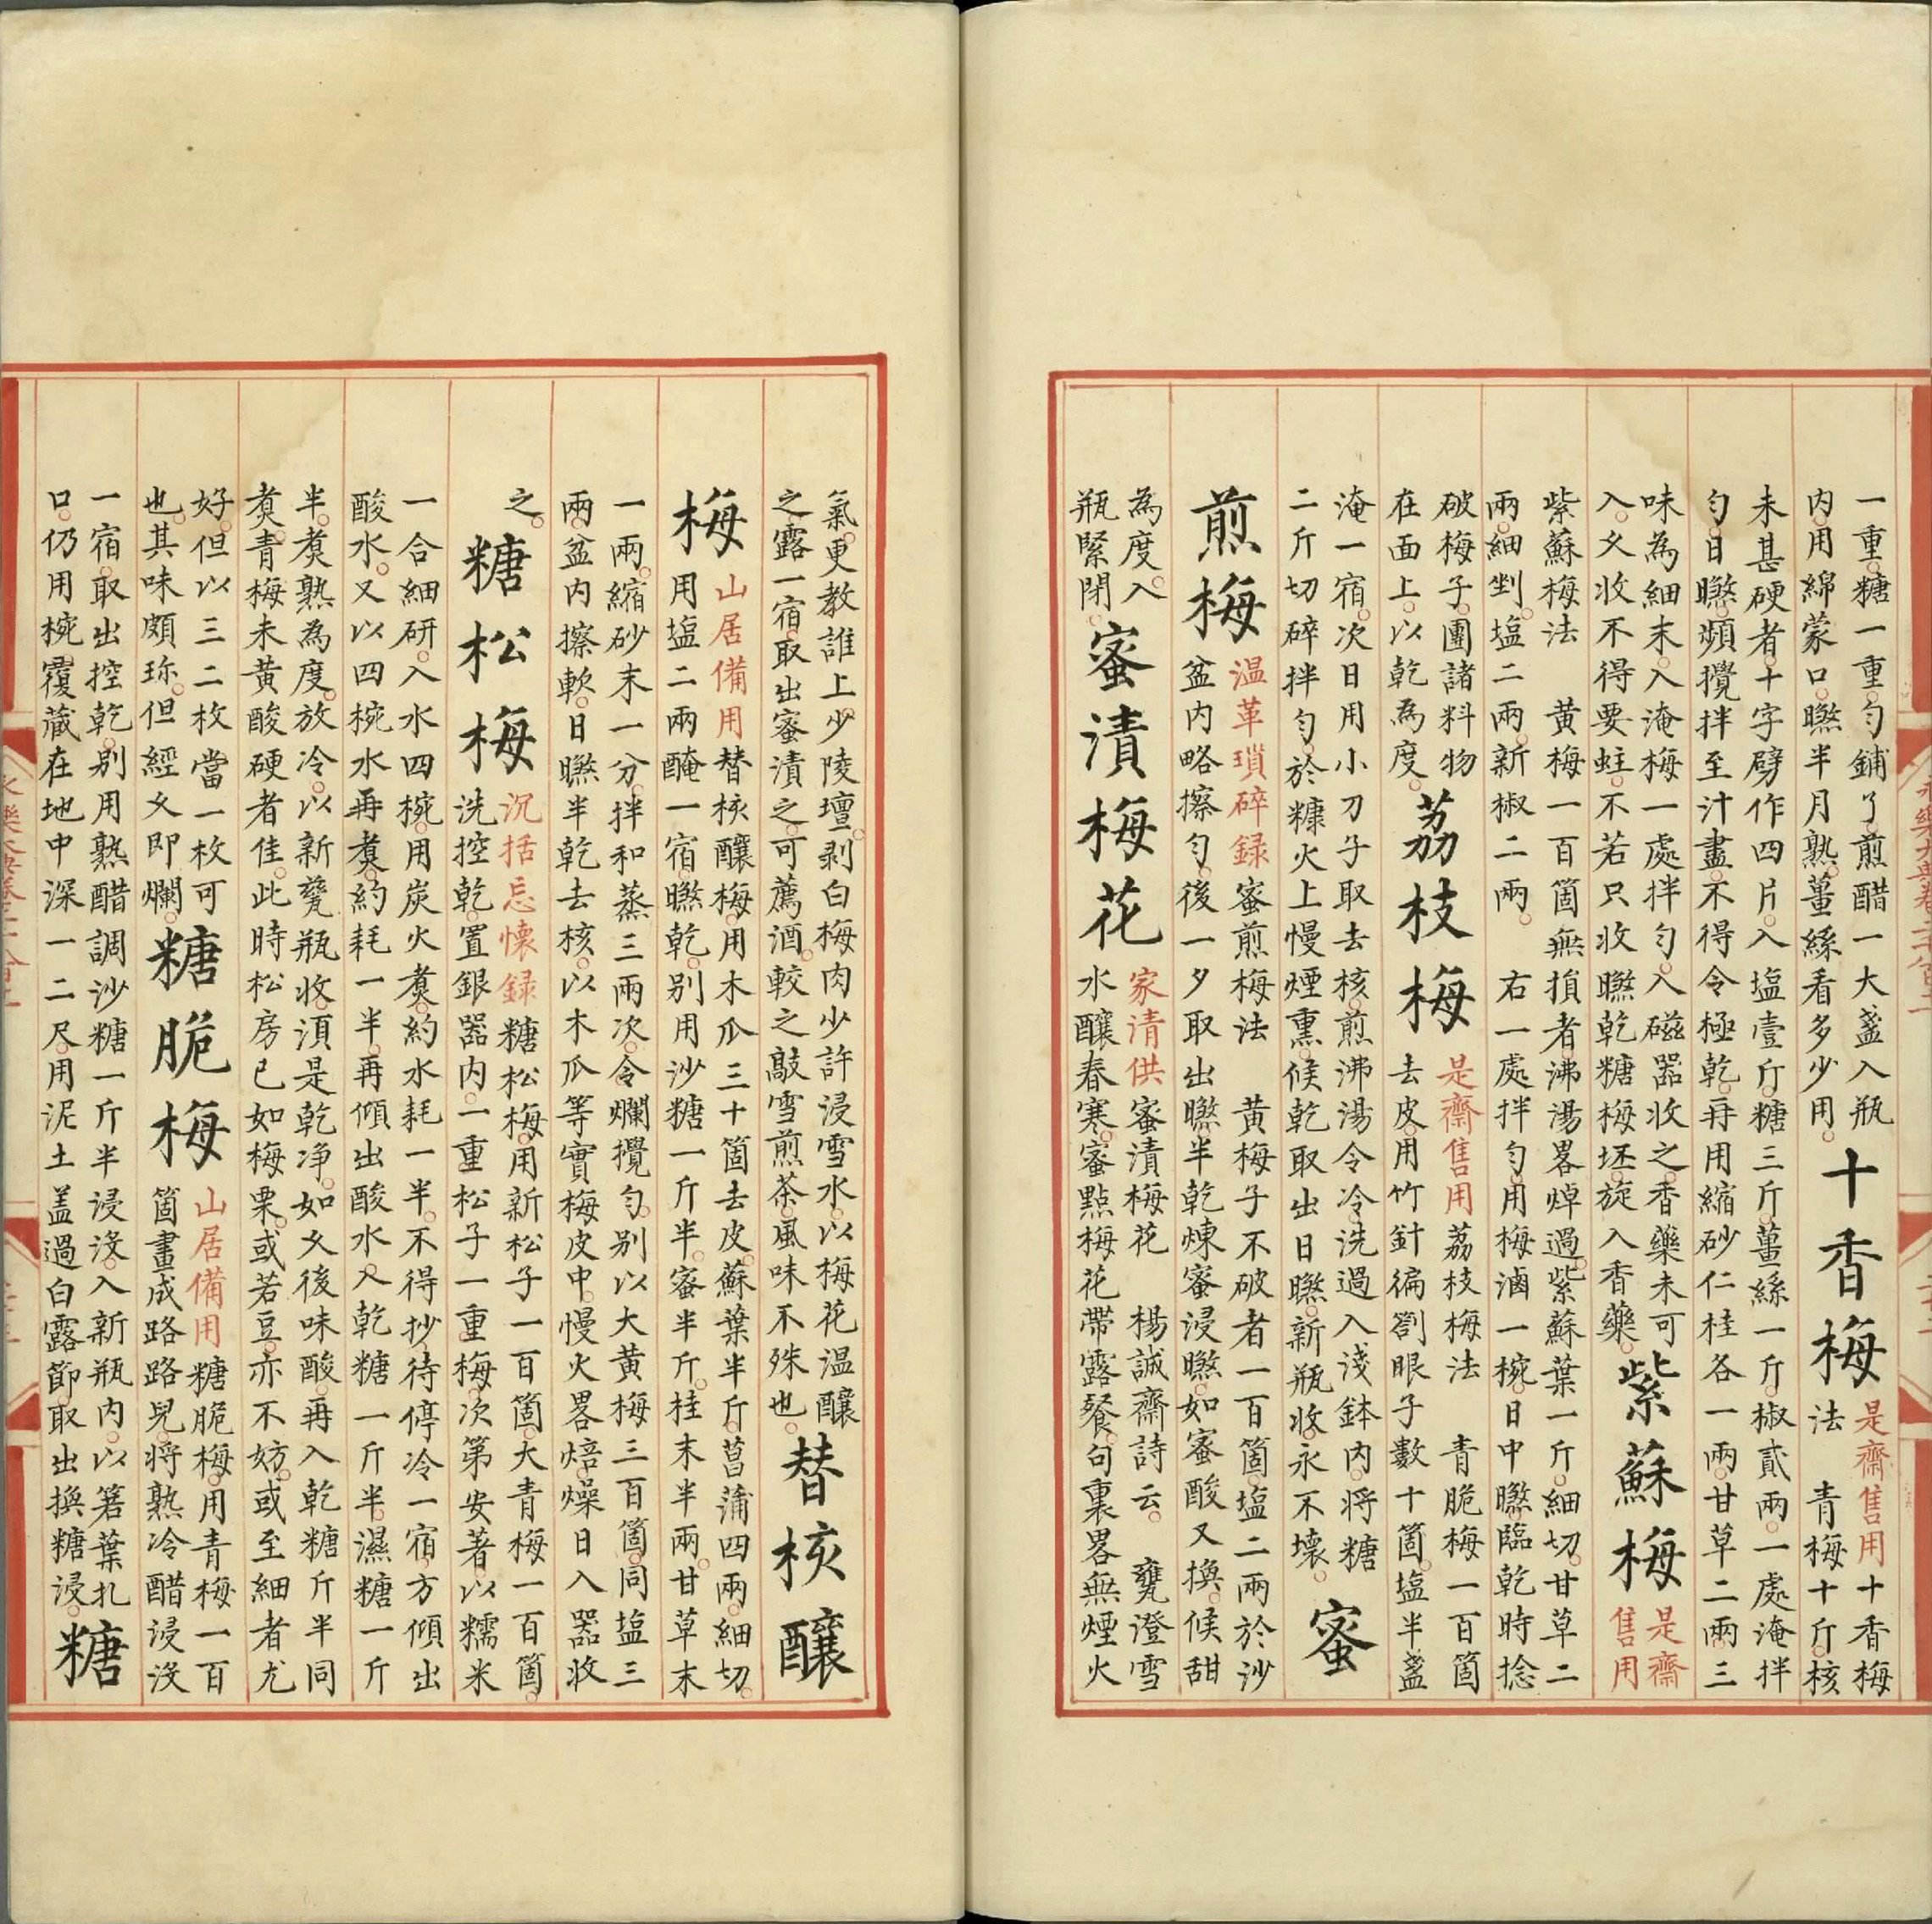 一重糖一重勻鋪了煎醋一大盞入瓶
内用綿蒙口曬半月熟薑絲看多少用
十香梅
是齋售用十香梅
法 青梅十斤核
未甚硬者十字劈作四片入塩壹斤糖三斤薑絲一斤椒貳兩一處淹拌
勻日曬頻攪拌至汁盡不得令極乾再用縮砂仁桂各一兩甘草二兩三
味為細末入淹梅一處拌勻入磁器收之香藥未可
入久收不得要蛀不若只收曬乾糖梅坯旋入香藥
紫蘇梅
是齋
售用
紫蘇梅法 黄梅一百箇無損者沸湯畧焯過紫蘇葉一斤細切甘草二
兩細剉塩二兩新椒二兩 右一處拌勻用梅滷一椀日中曬臨乾時捻
破梅子團諸料物
在面上以乾為度
荔枝梅
是齋售用荔枝梅法 青脆梅一百箇
去皮用竹針徧劄眼子數十箇塩半盞
淹一宿次日用小刀子取去核煎沸湯令冷洗過入淺鉢内將糖
二斤切碎拌勻於糠火上慢煙熏候乾取出日曬新瓶收永不壞
蜜
煎梅
温革瑣碎録蜜煎梅法 黄梅子不破者一百箇塩二兩於沙
盆内略擦勻後一夕取出曬半乾煉蜜浸曬如蜜酸又換候甜
為度入
瓶緊閉
蜜漬梅花
家清供蜜漬梅花 楊誠齋詩云 甕澄雪
水釀春寒蜜點梅花帶露餐句裏畧無煙火
氣更教誰上少陵壇剥白梅肉少許浸雪水以梅花温釀
之露一宿取出蜜漬之可薦酒較之敲雪煎茶風味不殊也
替核釀
梅
山居備用替核釀梅用木瓜三十箇去皮蘇葉半斤菖蒲四兩細切
用塩二兩醃一宿曬乾别用沙糖一斤半蜜半斤桂末半兩甘草末
一兩縮砂末一分拌和蒸三兩次令爛攪勻别以大黄梅三百箇同塩三
兩盆内擦軟日曬半乾去核以木瓜等實梅皮中慢火畧焙燥日入器收
之
糖松梅
沉括忘懷録糖松梅用新松子一百箇大青梅一百箇
洗控乾置銀器内一重松子一重梅次第安著以糯米
一合細研入水四椀用炭火煑約水耗一半不得抄待停冷一宿方傾出
酸水又以四椀水再煑約耗一半再傾出酸水入乾糖一斤半濕糖一斤
半煑熟為度放冷以新甆瓶收湏是乾净如久後味酸再入乾糖斤半同
煑青梅未黄酸硬者佳此時松房已如梅栗或若豆亦不妨或至細者尤
好但以三二枚當一枚可
也其味頗珎但經久即爛
糖脆梅
山居備用糖脆梅用青梅一百
箇畫成路路兒將熟冷醋浸没
一宿取出控乾别用熟醋調沙糖一斤半浸没入新瓶内以箬葉扎
口仍用椀覆藏在地中深一二尺用泥土盖過白露節取出換糖浸
糖